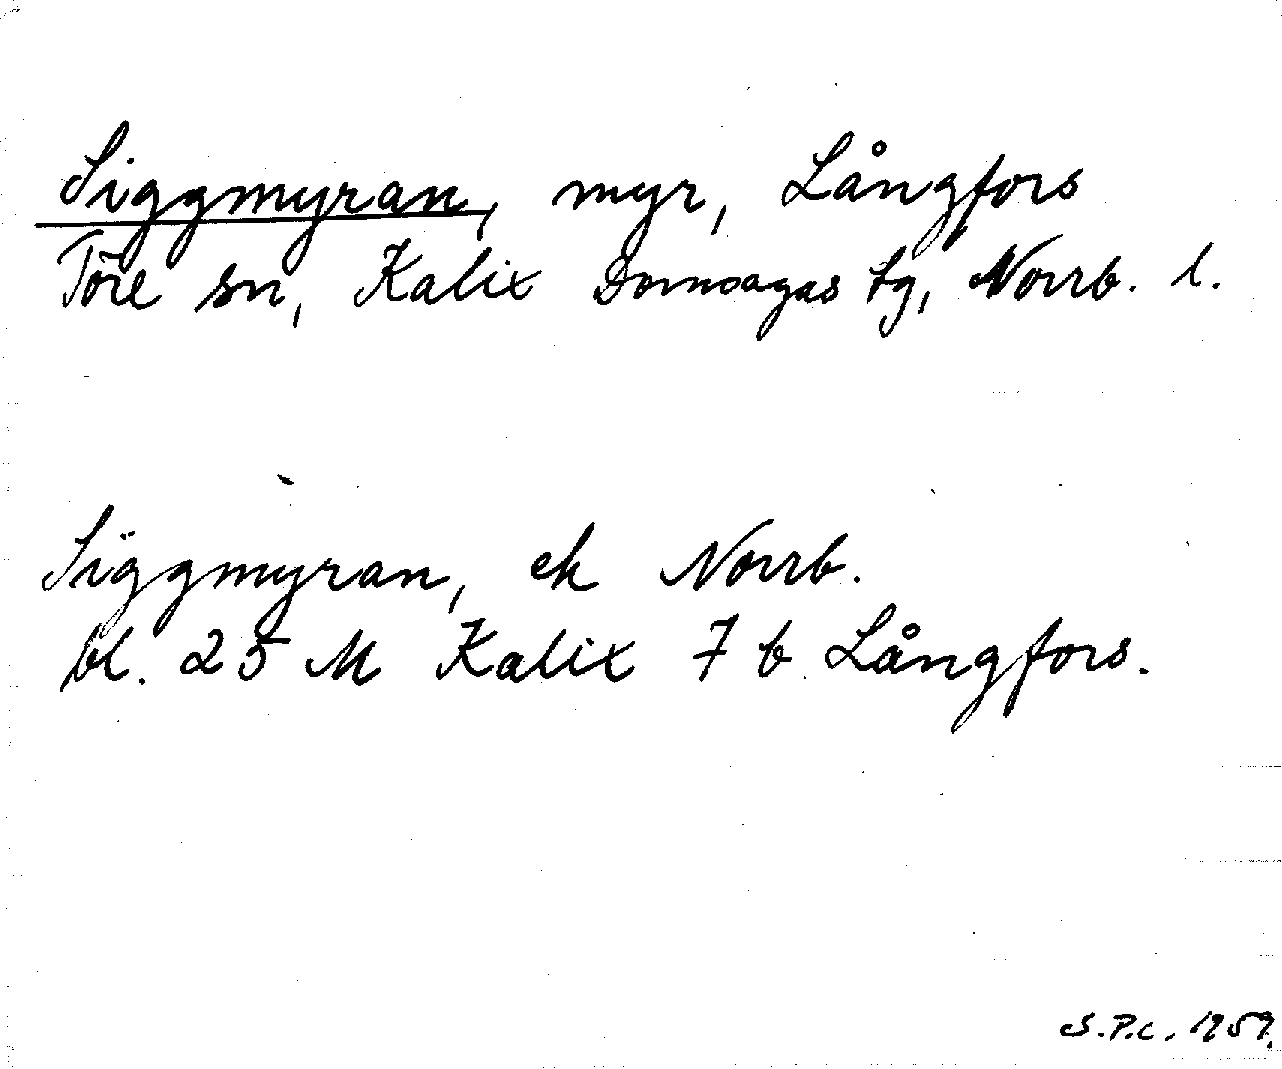 Siggmyran, myr, Långfors
Töre sn, Kalix Domsagas tg, Norrb. l.
Siggmyran, ek Norrb.
bl. 25 M Kalix 7 b Långfors.
S.P.C. 1959.